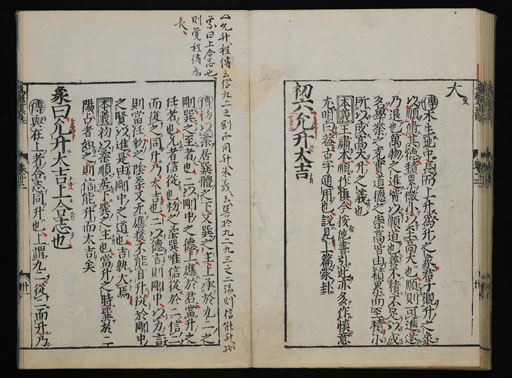 大
傳木生地中長而上升爲升之象君子觀升之象
以順脩其德積累微小以至高大也順則可進逆
乃退也萬物之進皆以順道也善不積不足以成
名學業之充實道德之崇高皆由積累而至積小
所以成高大升之義也
本義王肅本順作愼今按他書引此亦多作愼意
尤明白蓋古字通用也說見上篇蒙卦
初六允升大吉
允升程傳云信九二之剛而同升本義云巽於九二九三之二陽則信能升
象曰上合志也
則覺程傳爲
長
傳初以柔居巽體之下又巽之主上承於九二之
剛巽之至者也二以剛中之德上應於君當升之
任者也允者信從也初之柔巽唯信從於二信二
而從之同升乃大吉也二以德言則剛中以力言
則當任初之陰柔又无應援不能自升從於剛中
之賢以進是由剛中之道也吉孰大焉
本義初以柔順居下巽之主也當升之時巽於二
陽占者如之則信能升而大吉矣
象曰允升大吉上合志也
傳與在上者合志同升也上謂九二從二而升乃